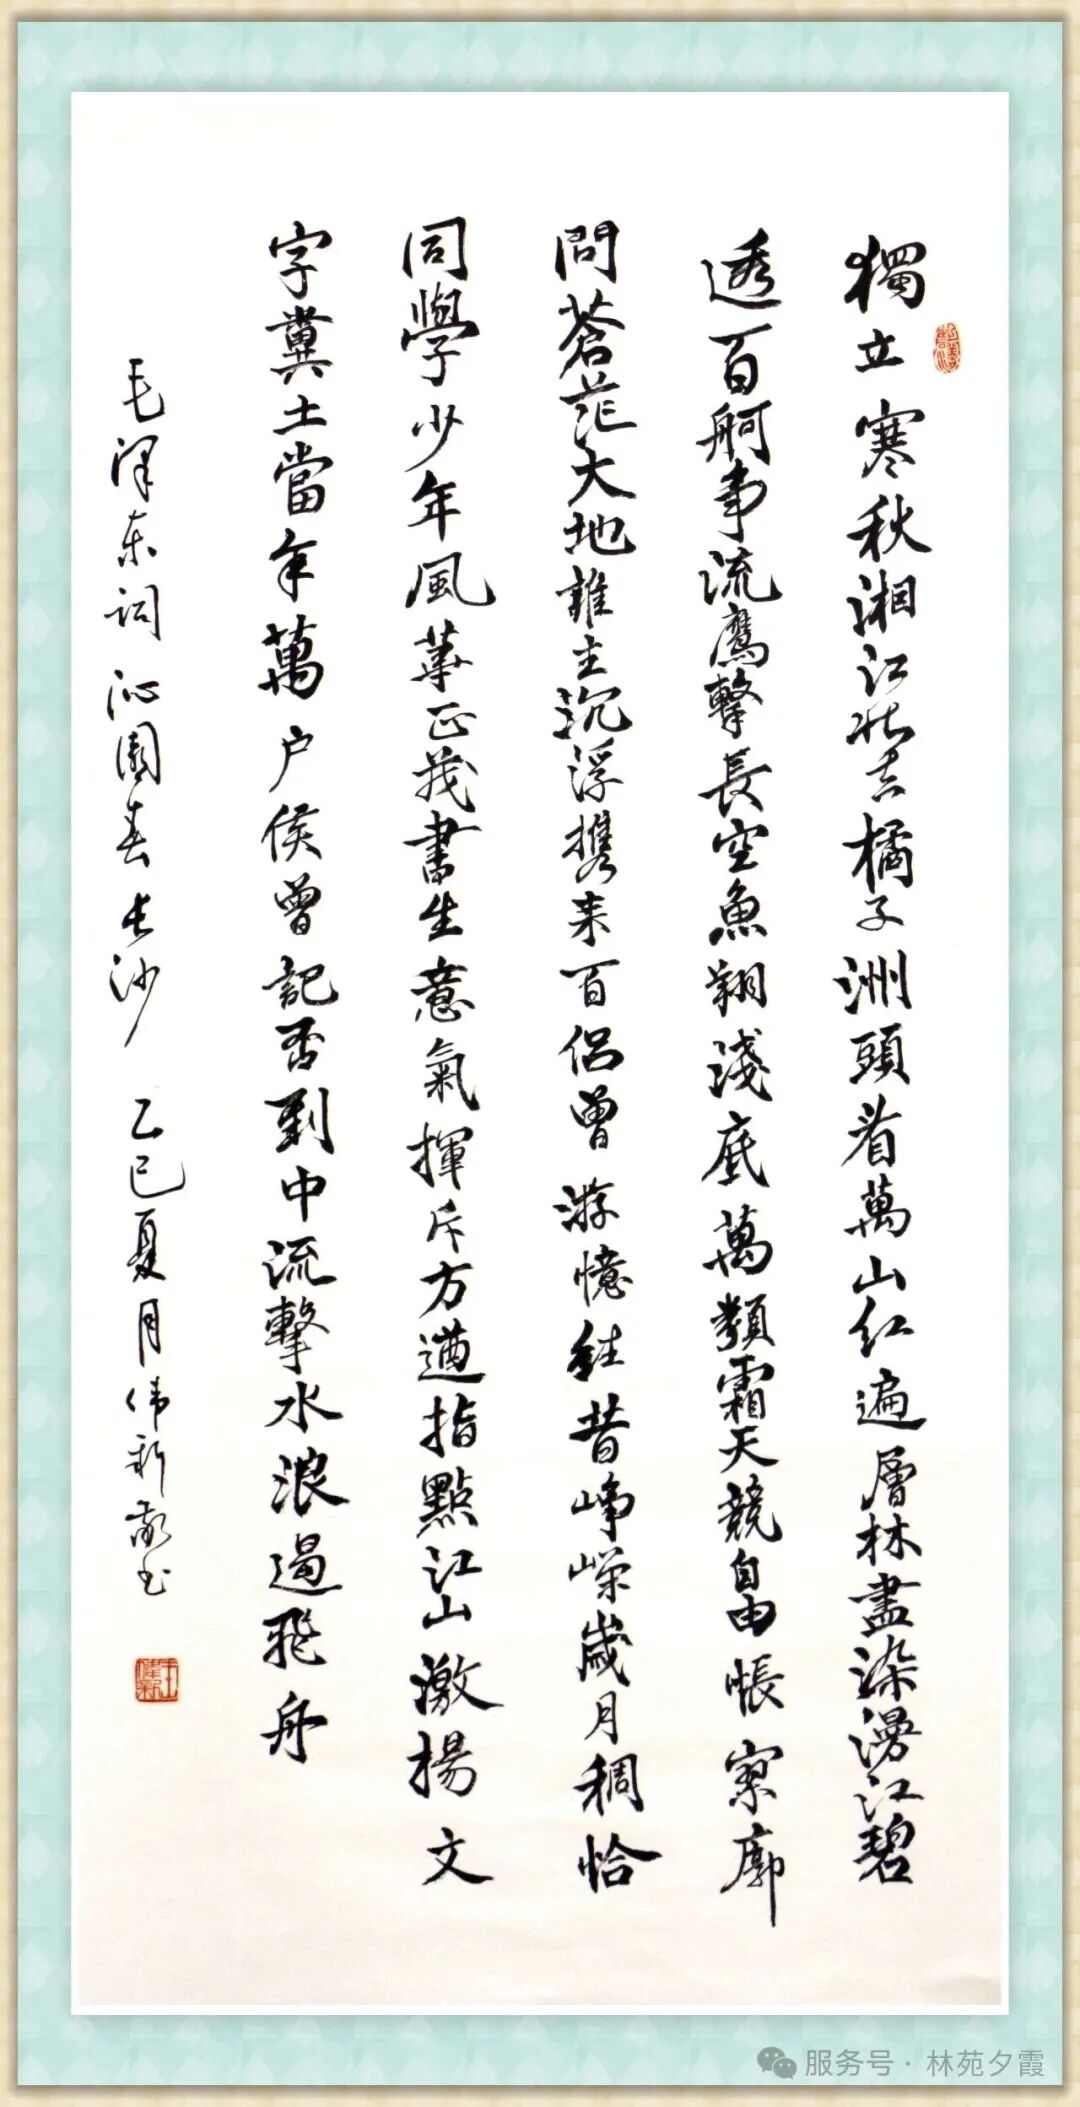 獨立寒秋湘江北去橘子洲頭看萬山紅遍層林盡染漫江碧
透百舸爭流鷹擊長空魚翔淺底萬類霜天競自由悵寥廓
問蒼茫大地誰主沉浮攜来百侶曾游憶往昔崢嶸歲月稠恰
同學少年風華正茂書生意氣揮斥方遒指點江山激揚文
字糞土當年萬户侯曾記否到中流擊水浪遏飛舟
毛澤东词沁園春长沙 乙巳夏月伟新敬书
王偉新
服务号·林苑夕霞